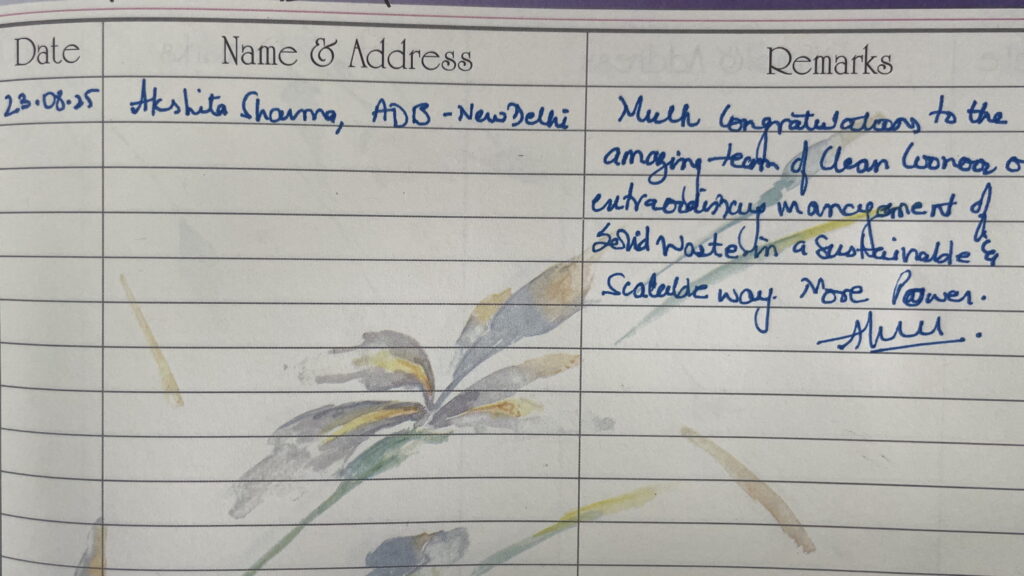 Date Name & Address Remarks
23.08.25 Akshita Sharma, ADB - New Delhi
Much Congratulations to the
amazing team of Clean Coonoor
extraordinary management of
Solid Waste in a Sustainable &
Scalable way. More Power.